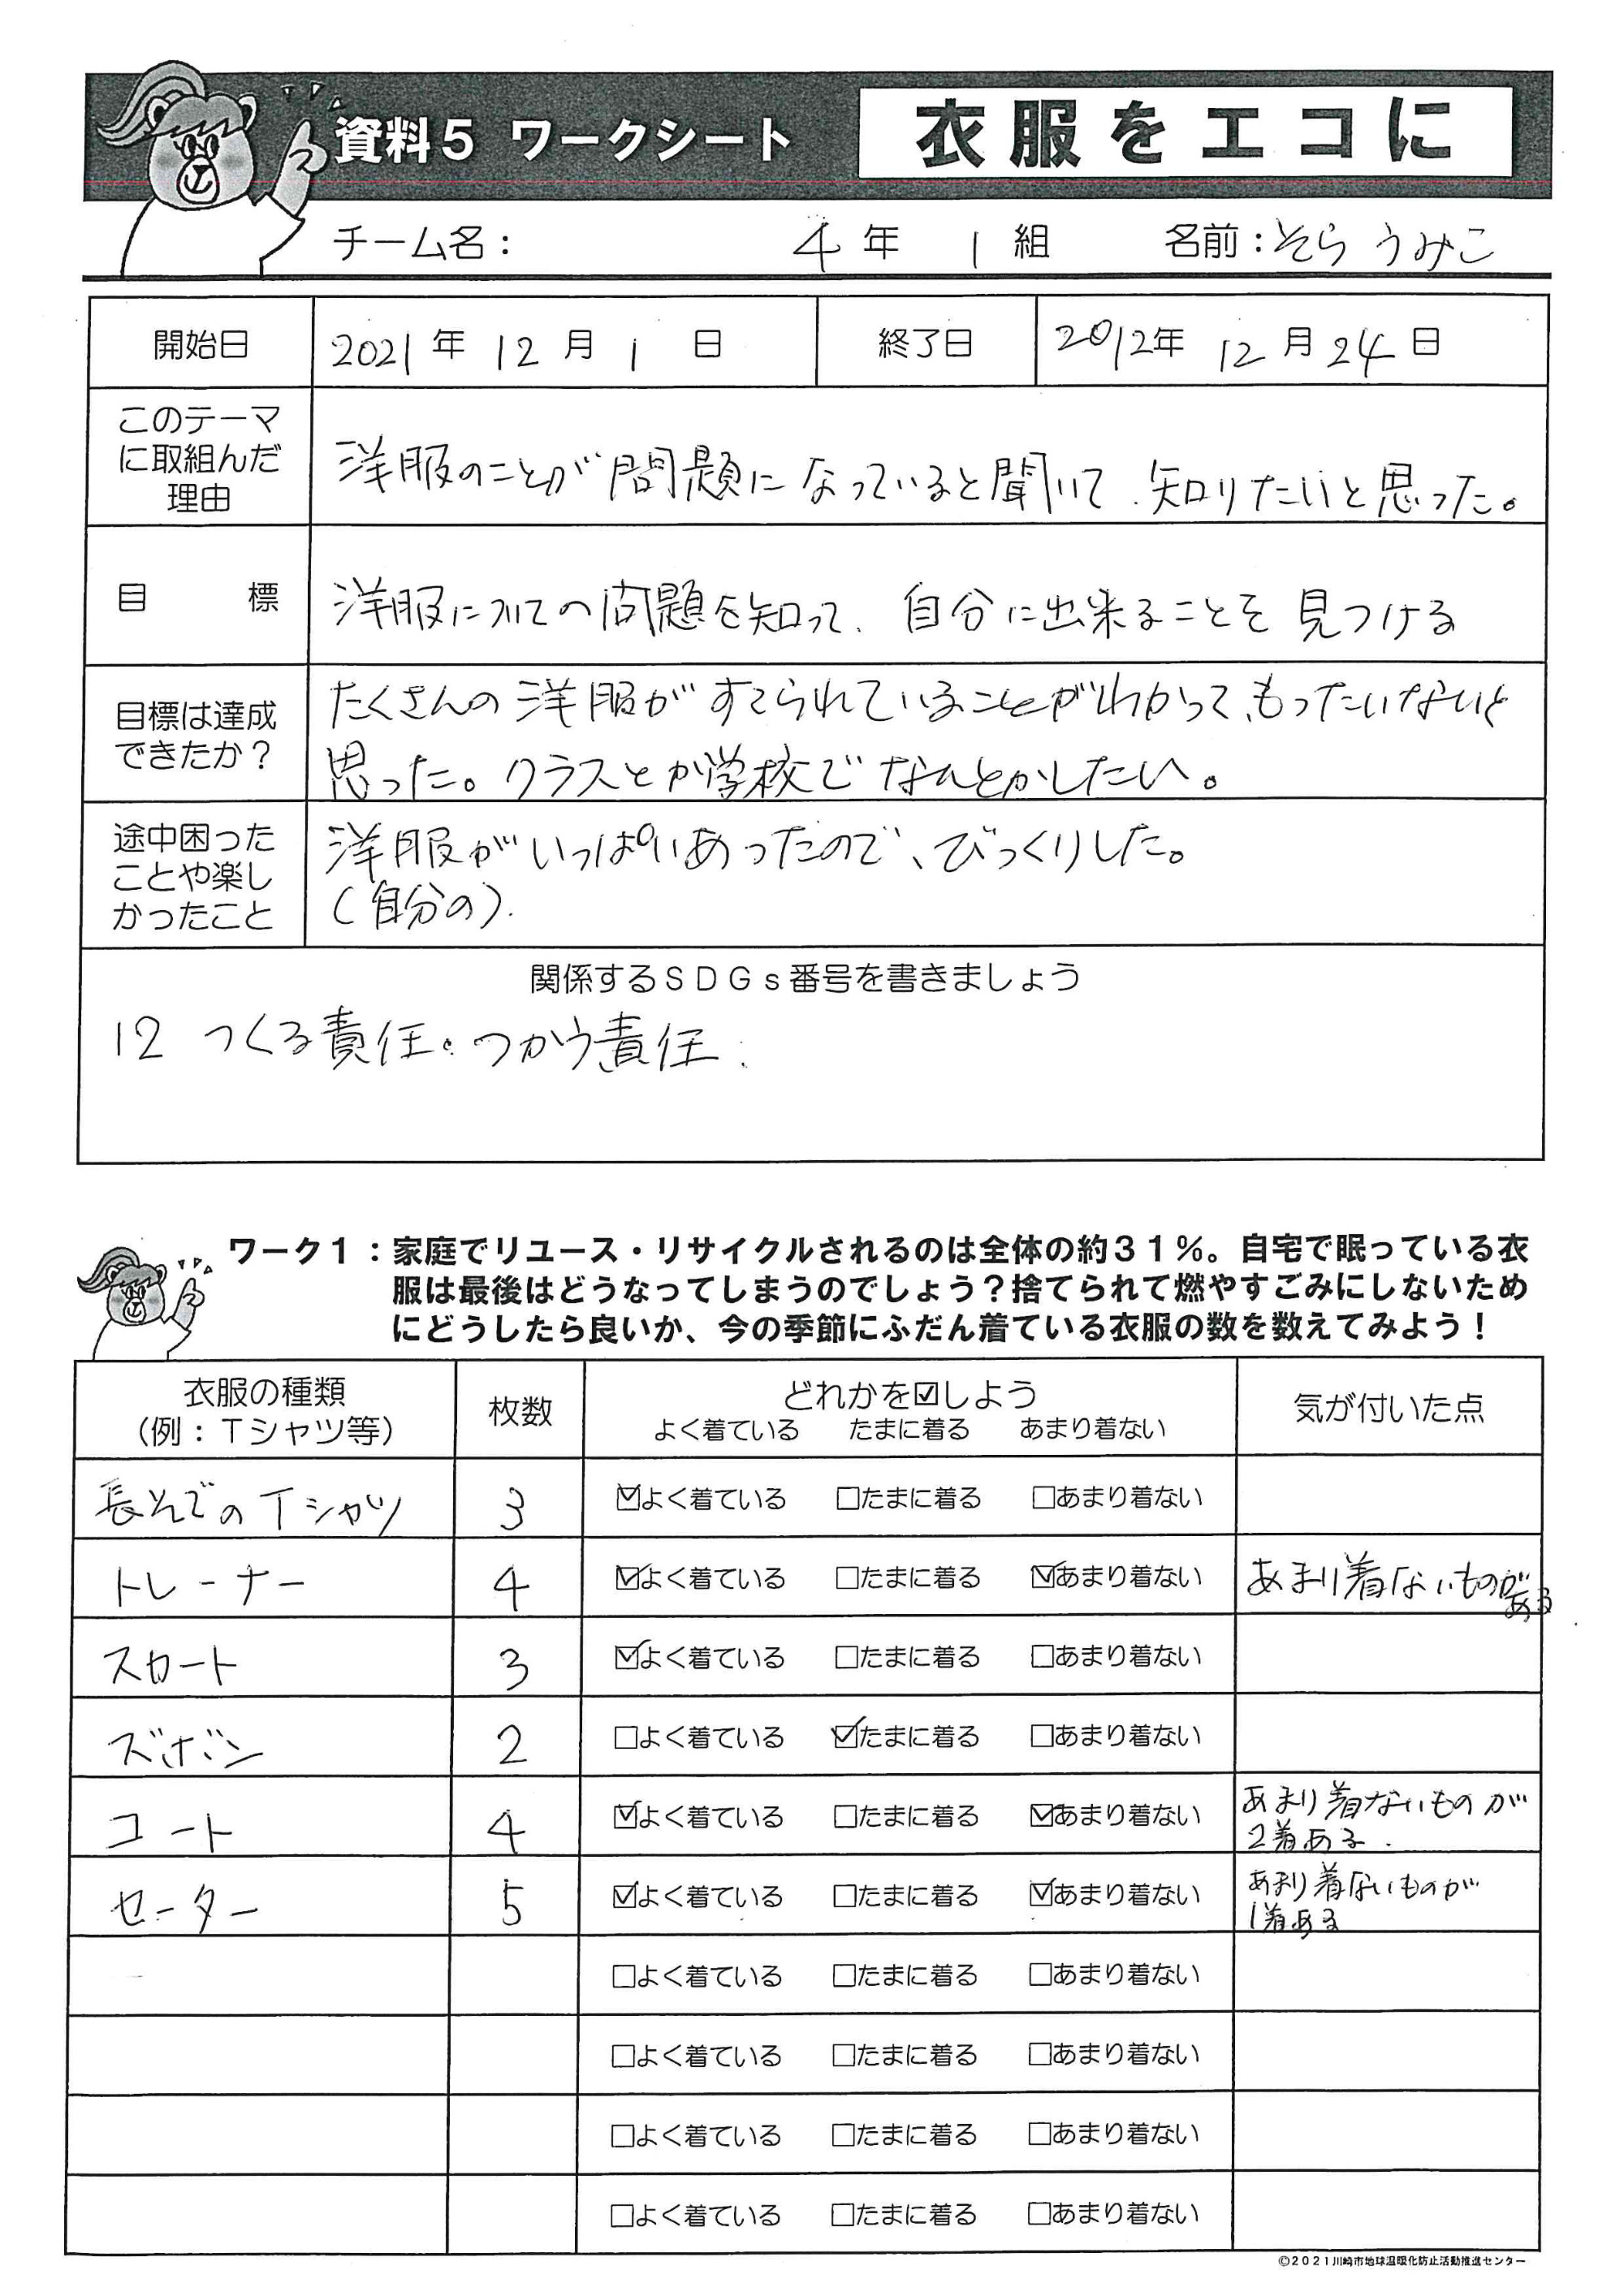 資料5 ワークシート 衣服をエコに
チーム名： 4年 1組 名前：そら うみこ
開始日 2021年 12月 1日 終了日 2012年 12月 24日
このテーマ
に取組んだ
理由
洋服のことが問題になっていると聞いて、知りたいと思った。
目 標
洋服についての問題を知って、自分に出来ることを見つける
目標は達成
できたか？
たくさんの洋服がすてられていることがわかって、もったいないと
思った。クラスとか学校でなんとかしたい。
途中困った
ことや楽し
かったこと
洋服がいっぱいあったので、びっくりした。
（自分の）.
関係するＳＤＧｓ番号を書きましょう
12 つくる責任・つかう責任.
ワーク１：家庭でリユース・リサイクルされるのは全体の約３１％。自宅で眠っている衣
服は最後はどうなってしまうのでしょう？捨てられて燃やすごみにしないため
にどうしたら良いか、今の季節にふだん着ている衣服の数を数えてみよう！
衣服の種類
（例：Ｔシャツ等）
枚数
どれかを☑しよう
よく着ている たまに着る あまり着ない
気が付いた点
長そでのTシャツ 3 ☑よく着ている □たまに着る □あまり着ない
トレーナー 4 ☑よく着ている □たまに着る ☑あまり着ない あまり着ないものが
ある
スカート 3 ☑よく着ている □たまに着る □あまり着ない
ズボン 2 □よく着ている ☑たまに着る □あまり着ない
コート 4 ☑よく着ている □たまに着る ☑あまり着ない あまり着ないものが
2着ある.
セーター 5 ☑よく着ている □たまに着る ☑あまり着ない あまり着ないものが
1着ある
□よく着ている □たまに着る □あまり着ない
□よく着ている □たまに着る □あまり着ない
□よく着ている □たまに着る □あまり着ない
□よく着ている □たまに着る □あまり着ない
©２０２１川崎市地球温暖化防止活動推進センター